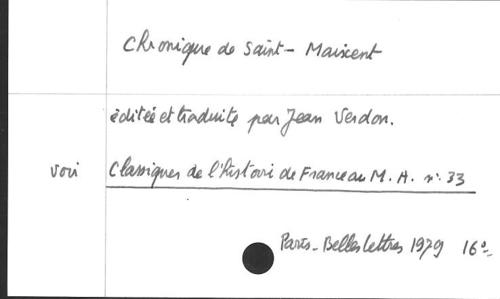 Chronique de Saint-Maixent
éditée et traduite par Jean Verdon.
voir Classiques de l'histoire de France au M. A. n°. 33
Paris-Belles lettres 1979 16°